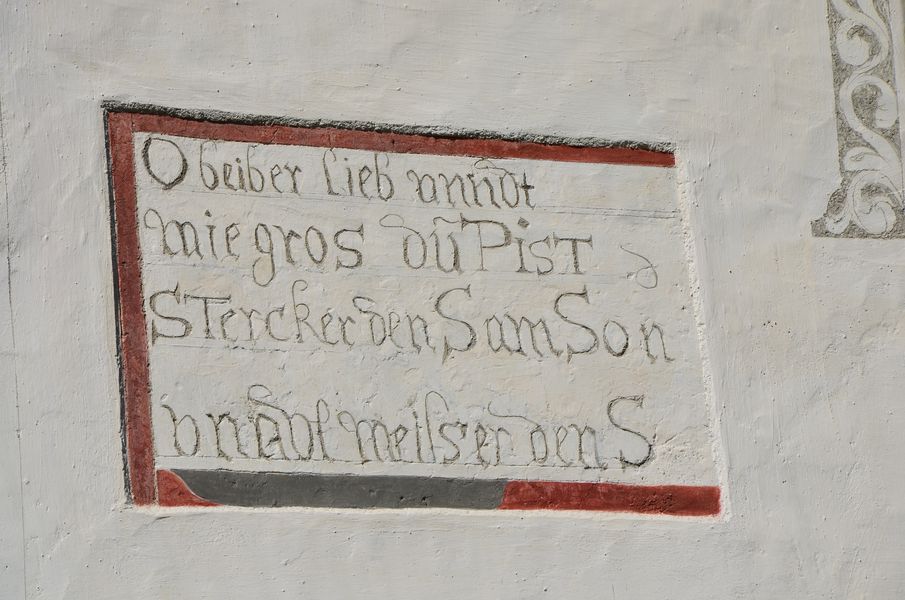 O beiber lieb vnndt
wie gros dū PisT
STercker den SamSon
vnndt weisser den S